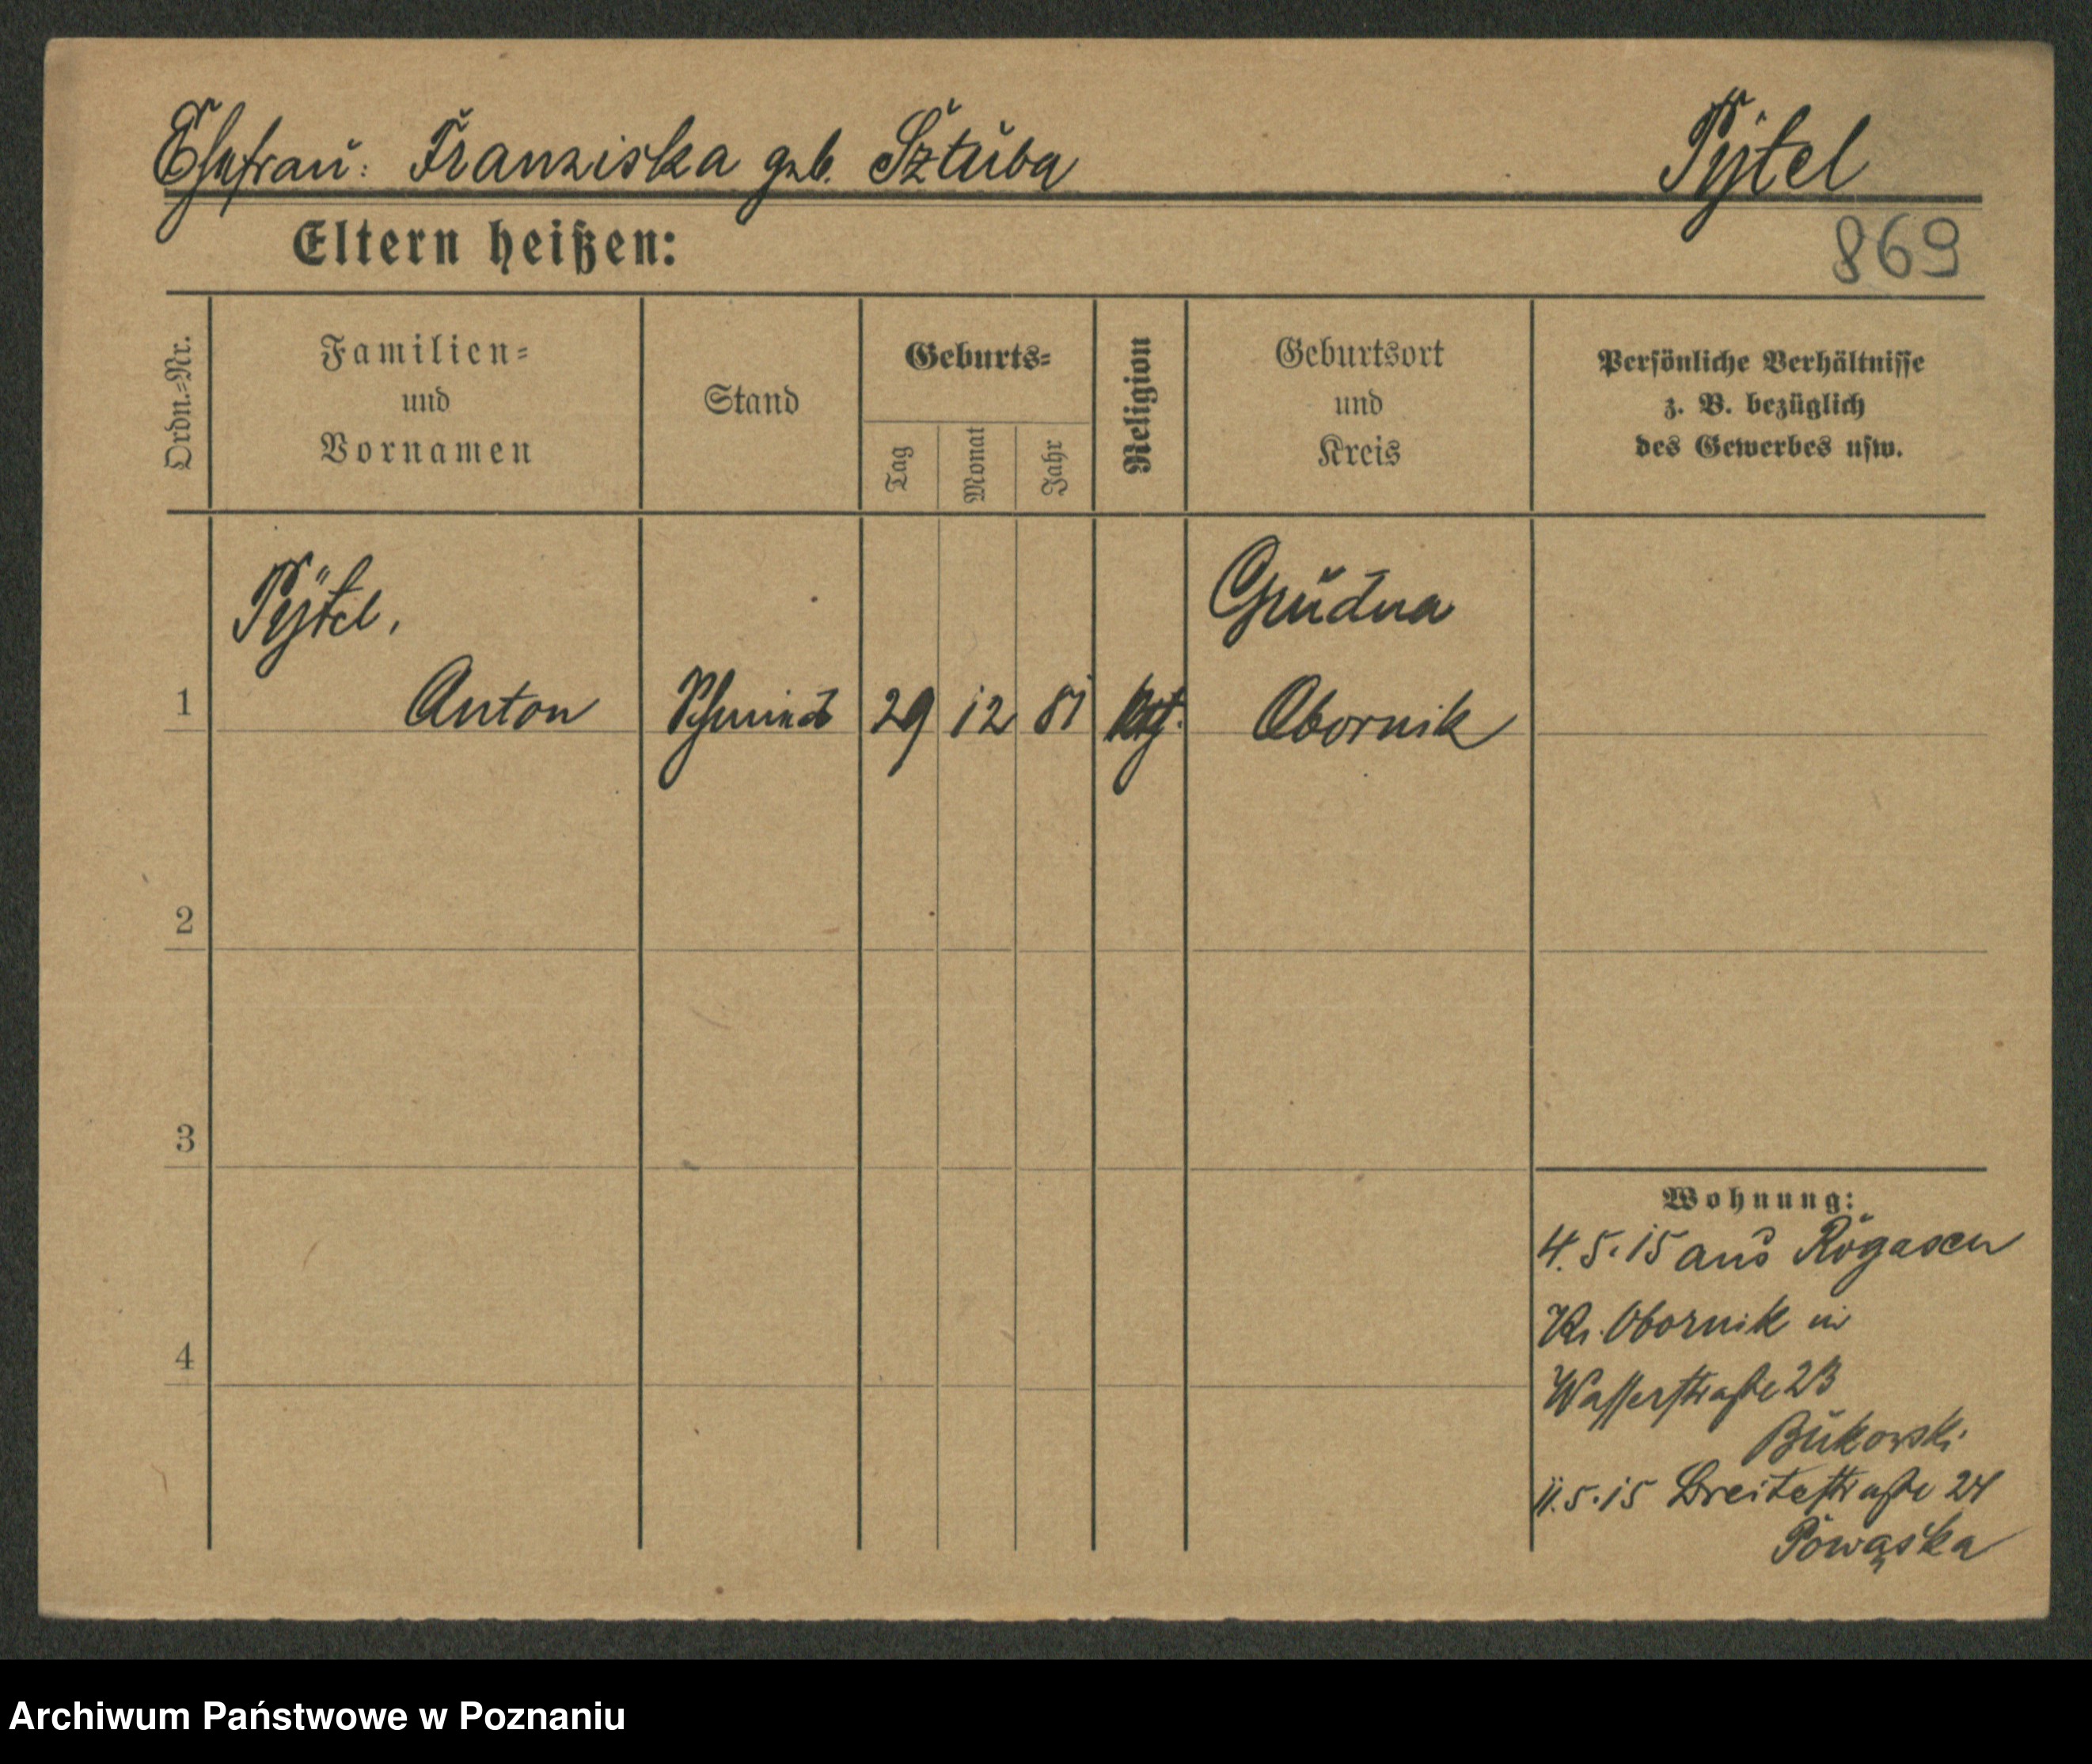 Ehefrau: Franziska geb. Sztuba
Pytel
Eltern heißen:
869
Ordn.=Nr.
Familien=
und
Vornamen
Stand
Geburts=
Tag
Monat
Jahr
Religion
Geburtsort
und
Kreis
Persönliche Verhältnisse
z. B. bezüglich
des Gewerbes usw.
Pytel,
Grudna
1 Anton Schmied 29 12 81 ktg. Obornik
2
3
4
Wohnung:
4.5.15 aus Rogasen
Kr. Obornik in
Wasserstraße 23
Bukowski
11.5.15 Breitestraße 24
Powąska
Archiwum Państwowe w Poznaniu